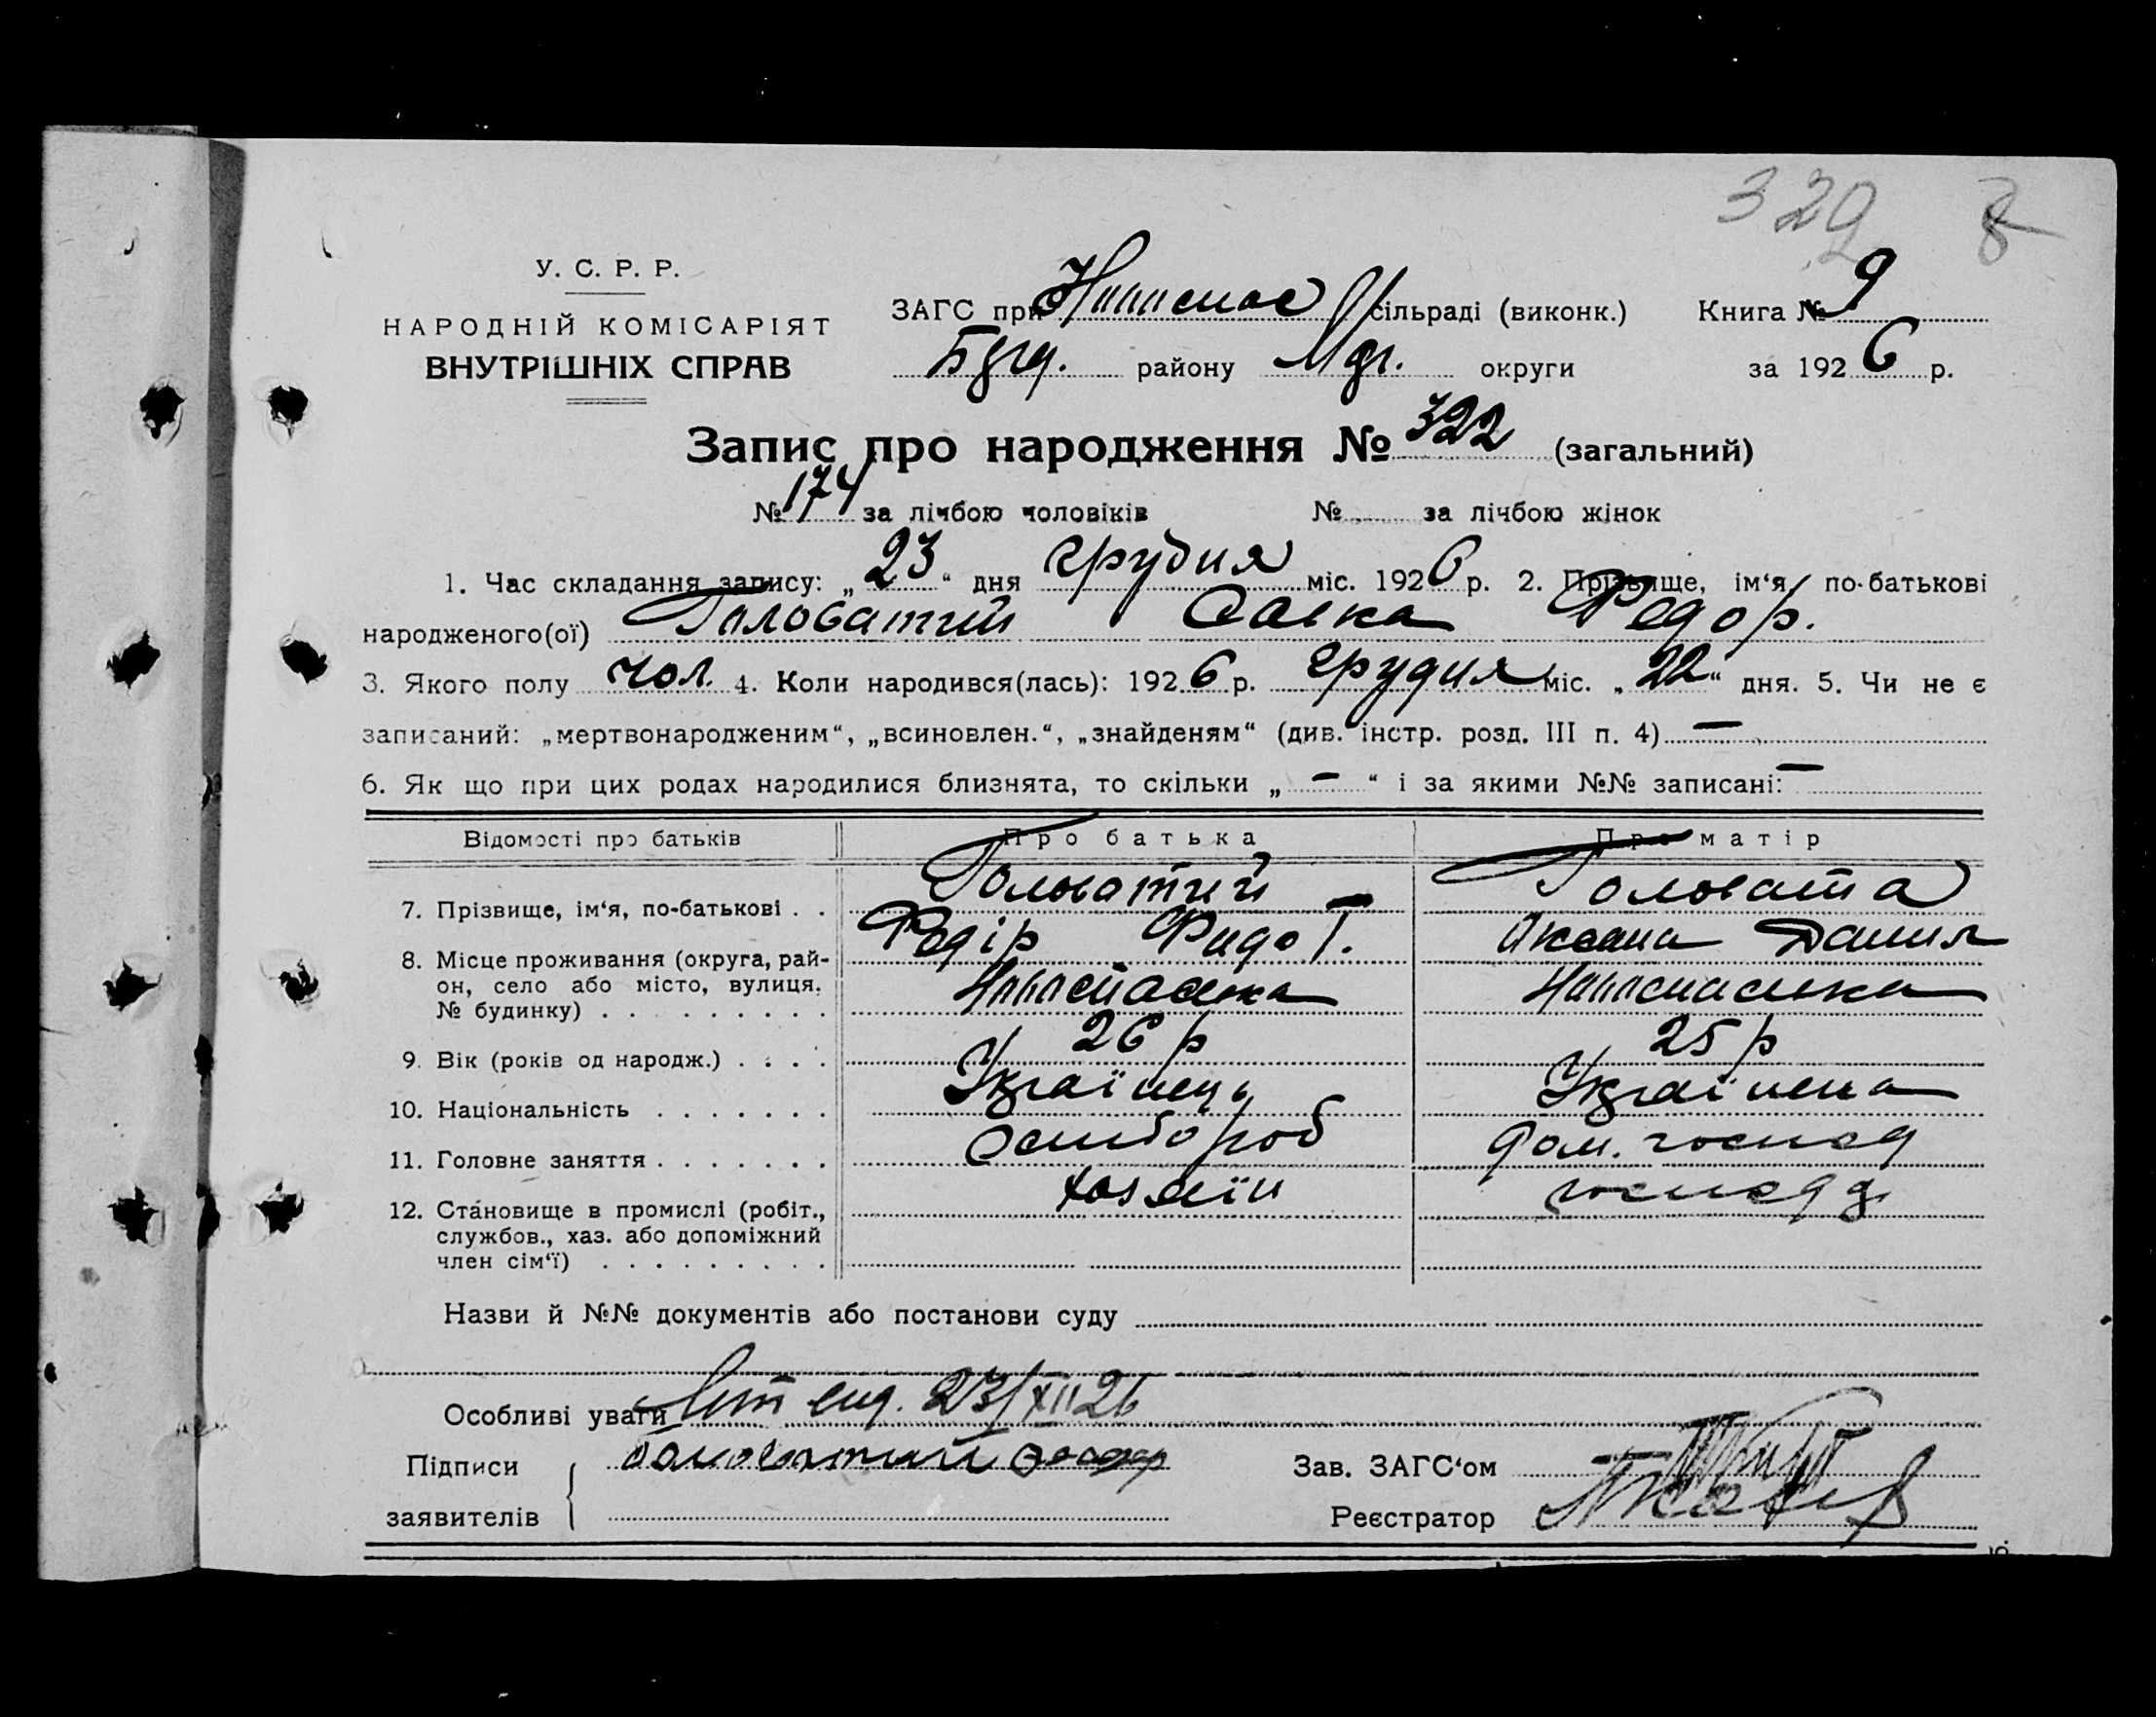 329 8
У. С. Р. Р.
НАРОДНІЙ КОМІСАРІЯТ
ВНУТРІШНІХ СПРАВ
ЗАГС при сільраді (виконк.) Книга № 9
району округи за 1926 р.
Запис про народження № 322 (загальний)
№ 174 за лічбою чоловіків № за лічбою жінок
1. Час складання запису: „23“ дня грудня міс. 1926 р. 2. Прізвище, ім‘я, по-батькові
народженого(ої) Головатий Савка Федор.
3. Якого полу чол. 4. Коли народився(лась): 1926 р. грудня міс. „22“ дня. 5. Чи не є
записаний: „мертвонародженим“, „всиновлен.“, „знайденям“ (див. інстр. розд. III п. 4) —
6. Як що при цих родах народилися близнята, то скільки „ — “ і за якими №№ записані: —
Відомості про батьків Про батька Про матір
7. Прізвище, ім‘я, по-батькові . . Головатий Головата
Федір Оксана Данил
8. Місце проживання (округа, рай-
он, село або місто, вулиця,
№ будинку) . . . . . . . . .
9. Вік (років од народж.) . . . . 26 р 25 р
10. Національність . . . . . . . Українець Українка
11. Головне заняття . . . . . . . хлібороб дом. господ
12. Становище в промислі (робіт.,
службов., хаз. або допоміжний
член сім‘ї) . . . . . . . . .
хазяїн
Назви й №№ документів або постанови суду
Особливі уваги 23/XII 26
Підписи
заявителів
Головатий
Зав. ЗАГС‘ом
Реєстратор